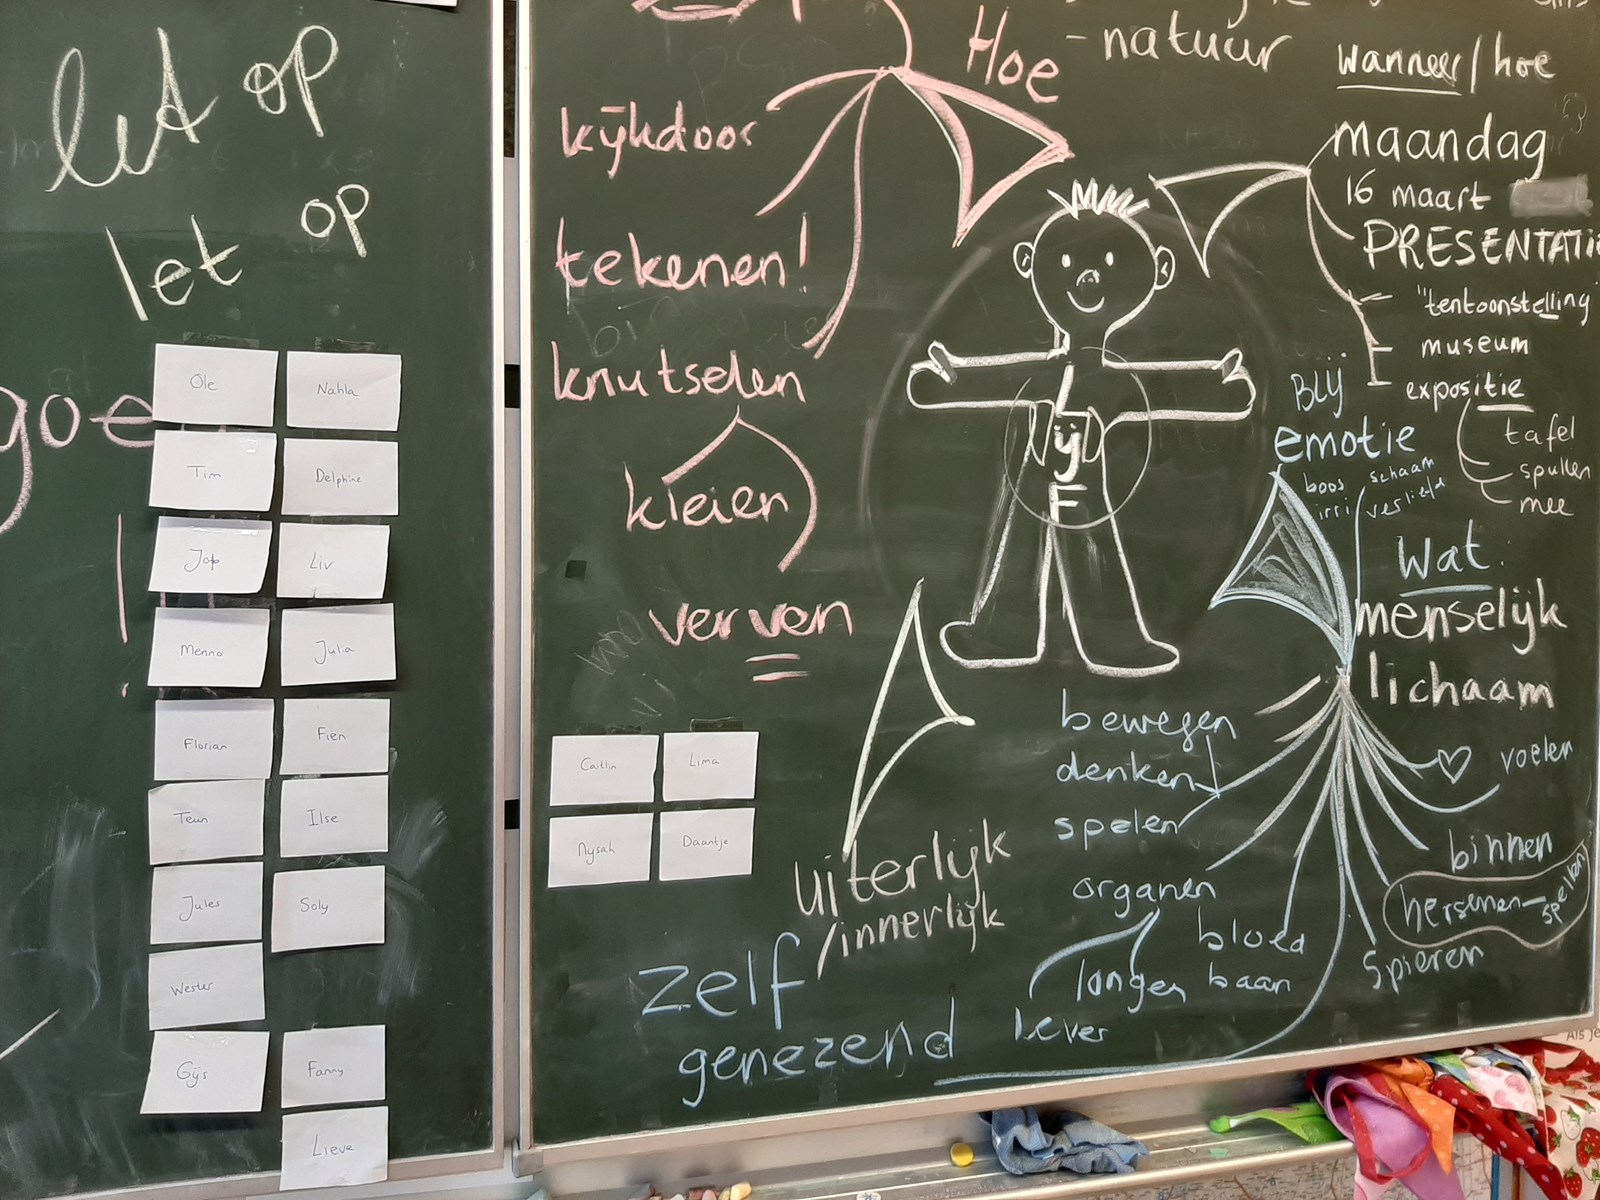 let op
let op
goe
!
Ole
Nahla
Tim
Delphine
Jop
Liv
Menno
Julia
Florian
Fien
Teun
Ilse
Jules
Soly
Wester
Gijs
Fanny
Lieve
Hoe
kijkdoos
tekenen!
knutselen
kleien
verven
Caitlin
Lima
Nysah
Daantje
- natuur
wanneer / hoe
maandag
16 maart
PRESENTATIE
"tentoonstelling
museum
expositie
tafel
spullen
mee
LijF
Blij
emotie
boos
schaam
irri
verliefd
Wat:
menselijk
lichaam
bewegen
denken
spelen
♡ voelen
binnen
hersenen-spellen
spieren
organen
bloed
baan
longen
lever
uiterlijk
/innerlijk
zelf
genezend